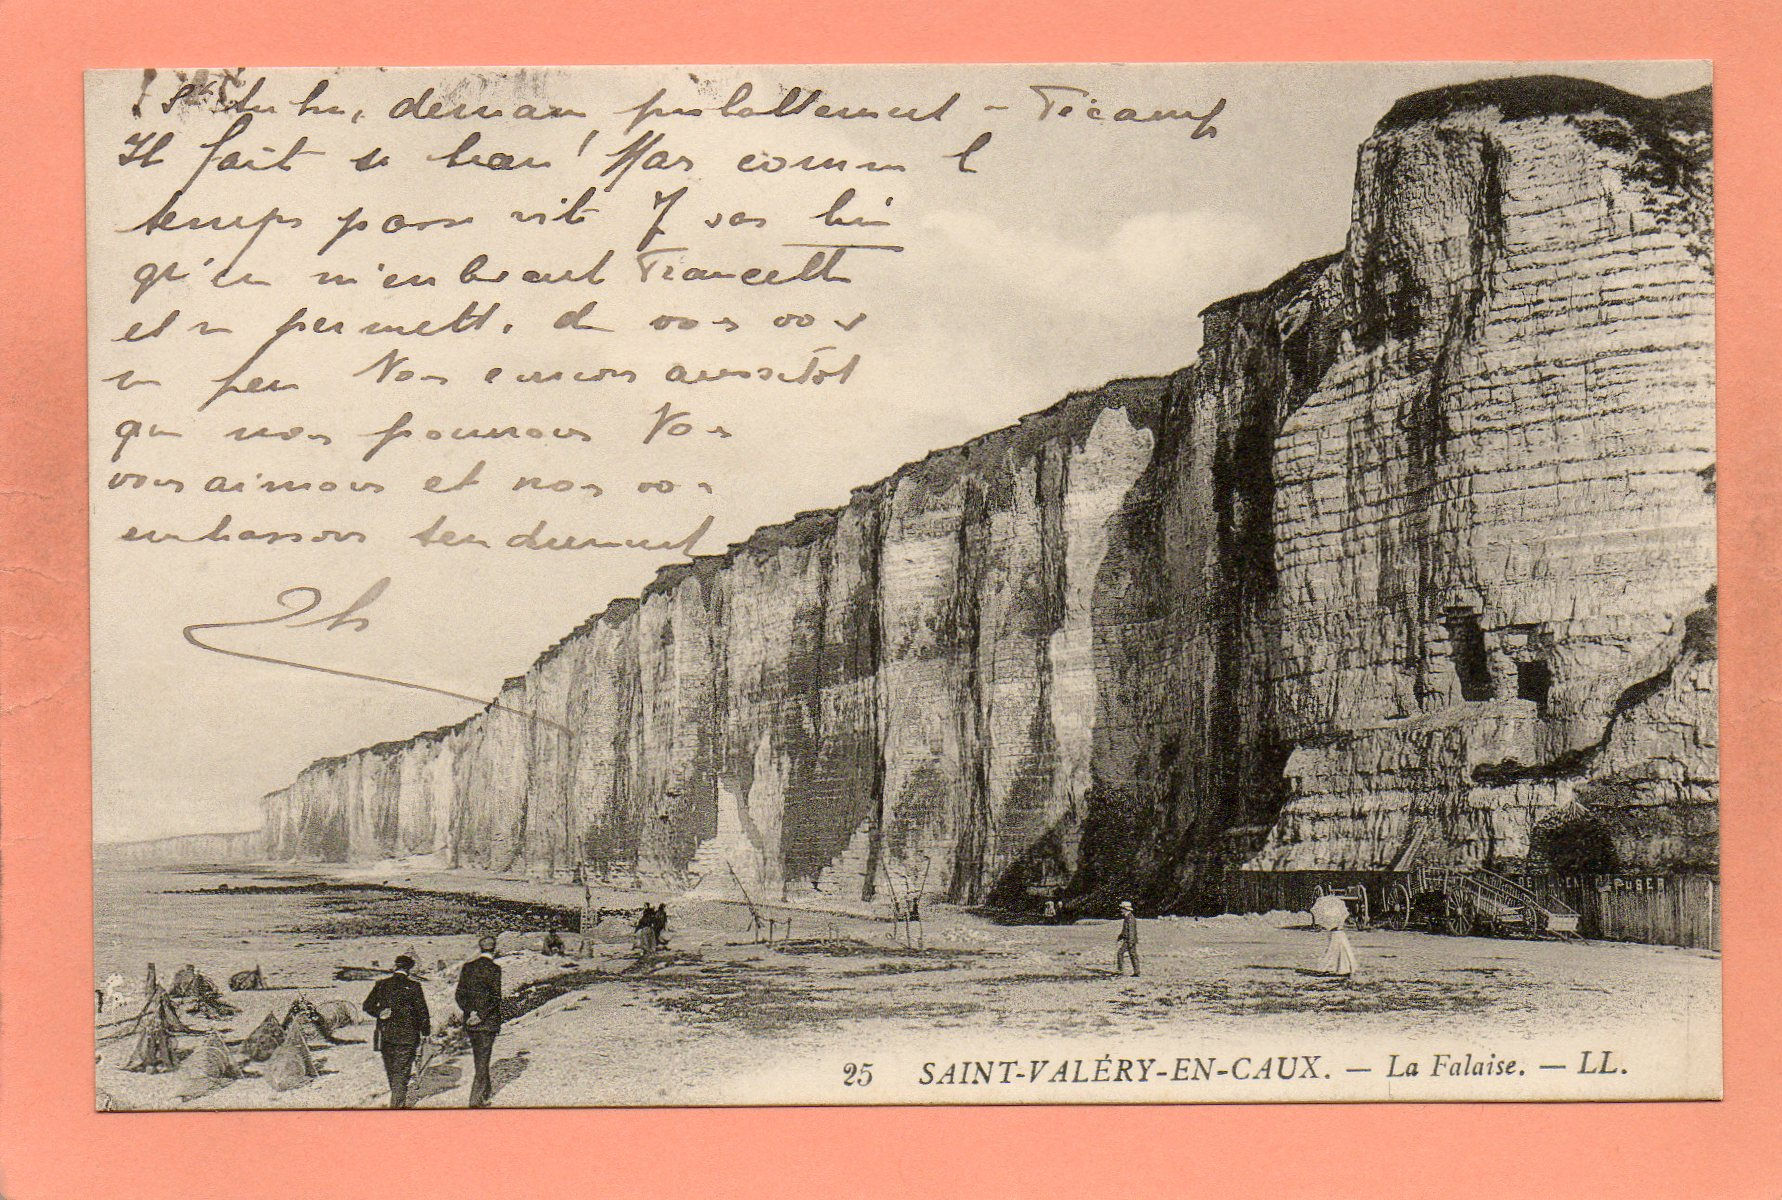 demain probablement - Fécamp
Il fait si beau! Mais comme l
temps passe vite
qu'en m'embrassant Francette
et permett. de vous voir
un peu Nous errivons aussitôt
que nous pourrons Nous
vous aimons et nous vous
embrassons tendrement
25 SAINT-VALÉRY-EN-CAUX. — La Falaise. — LL.